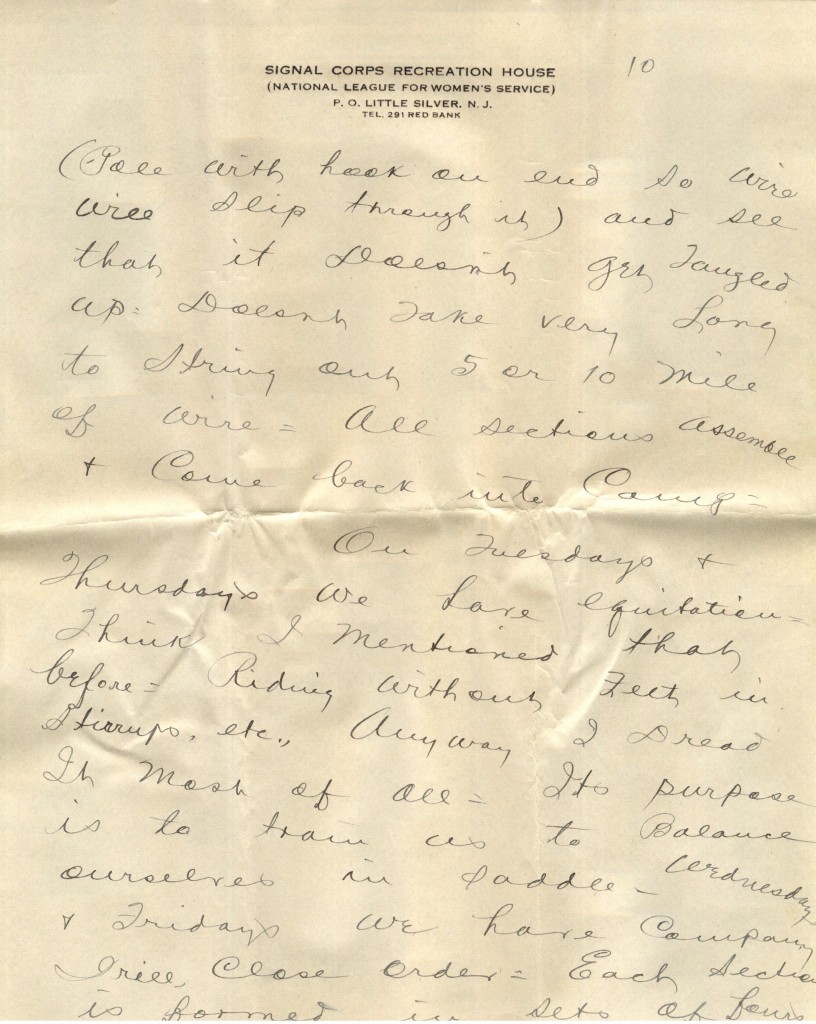 SIGNAL CORPS RECREATION HOUSE
(NATIONAL LEAGUE FOR WOMEN'S SERVICE)
P. O. LITTLE SILVER, N. J.
TEL. 291 RED BANK
10
(Pole with hook on end so wire
will slip through it) and see
that it Doesnt get Tangled
up = Doesnt Take very Long
to String out 5 or 10 Mile
of wire = All sections assemble
+ Come back into Camp =
On Tuesdays +
Thursdays We have equitation =
Think I Mentioned that
before = Riding without Feet in
Stirrups, etc., Anyway I Dread
It Most of All = Its purpose
is to train us to Balance
ourselves in Saddle - Wednesdays
+ Fridays We have Company
Drill, Close order = Each Section
is formed in sets of fours